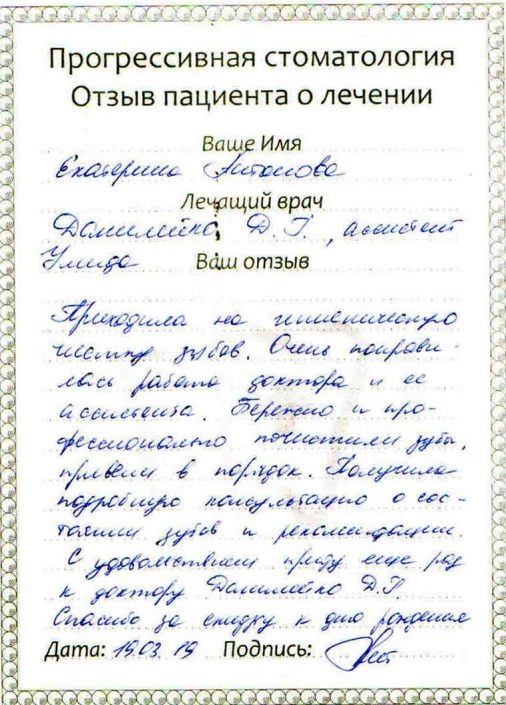 Прогрессивная стоматология
Отзыв пациента о лечении
Ваше Имя
Екатерина Антонова
Лечащий врач
Данилейко Д.Г., ассистент
Умида Ваш отзыв
Приходила на гигиеническую
чистку зубов. Очень понрави-
лась работа доктора и ее
ассистента. Бережно и про-
фессионально почистили зубы,
привели в порядок. Получила
подробную консультацию о сос-
тоянии зубов и рекомендации.
С удовольствием приду еще раз
к доктору Данилейко Д.Г.
Спасибо за скидку к дню рождения
Дата: 19.03.19 Подпись: